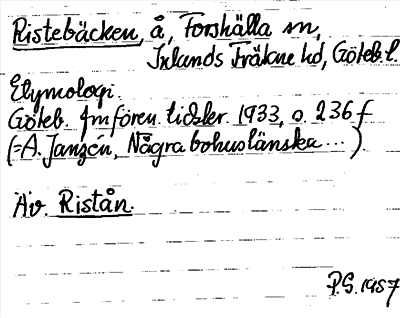 Ristebäcken, å, Forshälla sn,
Inlands Fräkne hd, Göteb. l.
Etymologi.
Göteb. fmfören. tidskr. 1933, s. 236 f
(=A. Janzén, Några bohuslänska ... ).
Äv. Ristån.
P.G. 1957